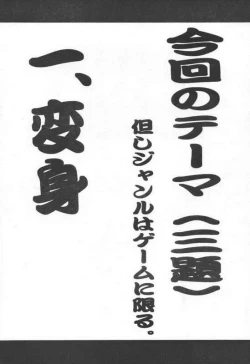 今回のテーマ（三題）
但しジャンルはゲームに限る。
一、変身